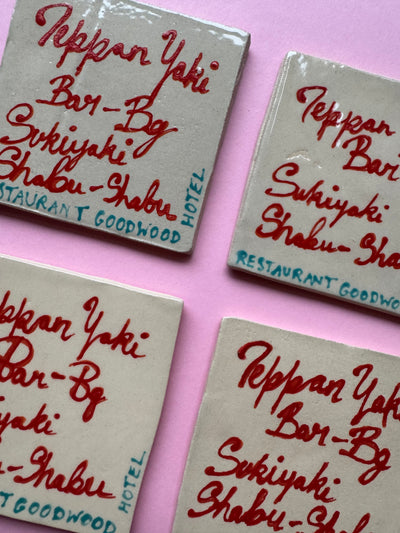 Teppan Yaki
Bar-Bg
Sukiyaki
Shabu-Shabu
STAURANT GOODWOOD
HOTEL
Teppan
Bar
Sukiyaki
Shabu-Sha
RESTAURANT GOODWO
ppan Yaki
Bar-Bg
iyaki
u-Shabu
T GOODWOOD
HOTEL
Teppan Yak
Bar-Bg
Sukiyaki
Shabu-Shabu